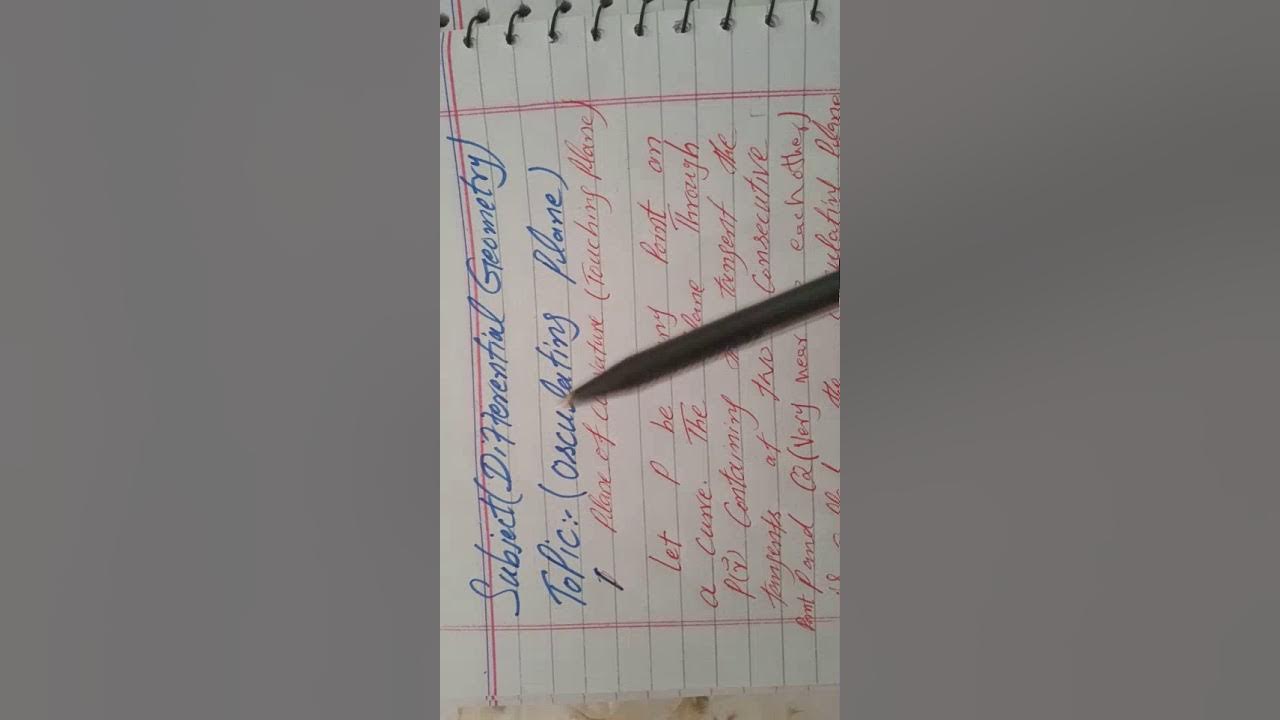 Subject(Differential Geometry)
Topic:-(Osculating Plane)
Plane of (Touching Plane)
Let P be Point on
a curve. The Through
P(r⃗) Containing tangent the
tangents at two Consecutive
Point P and Q(Very near each other)
the Plane